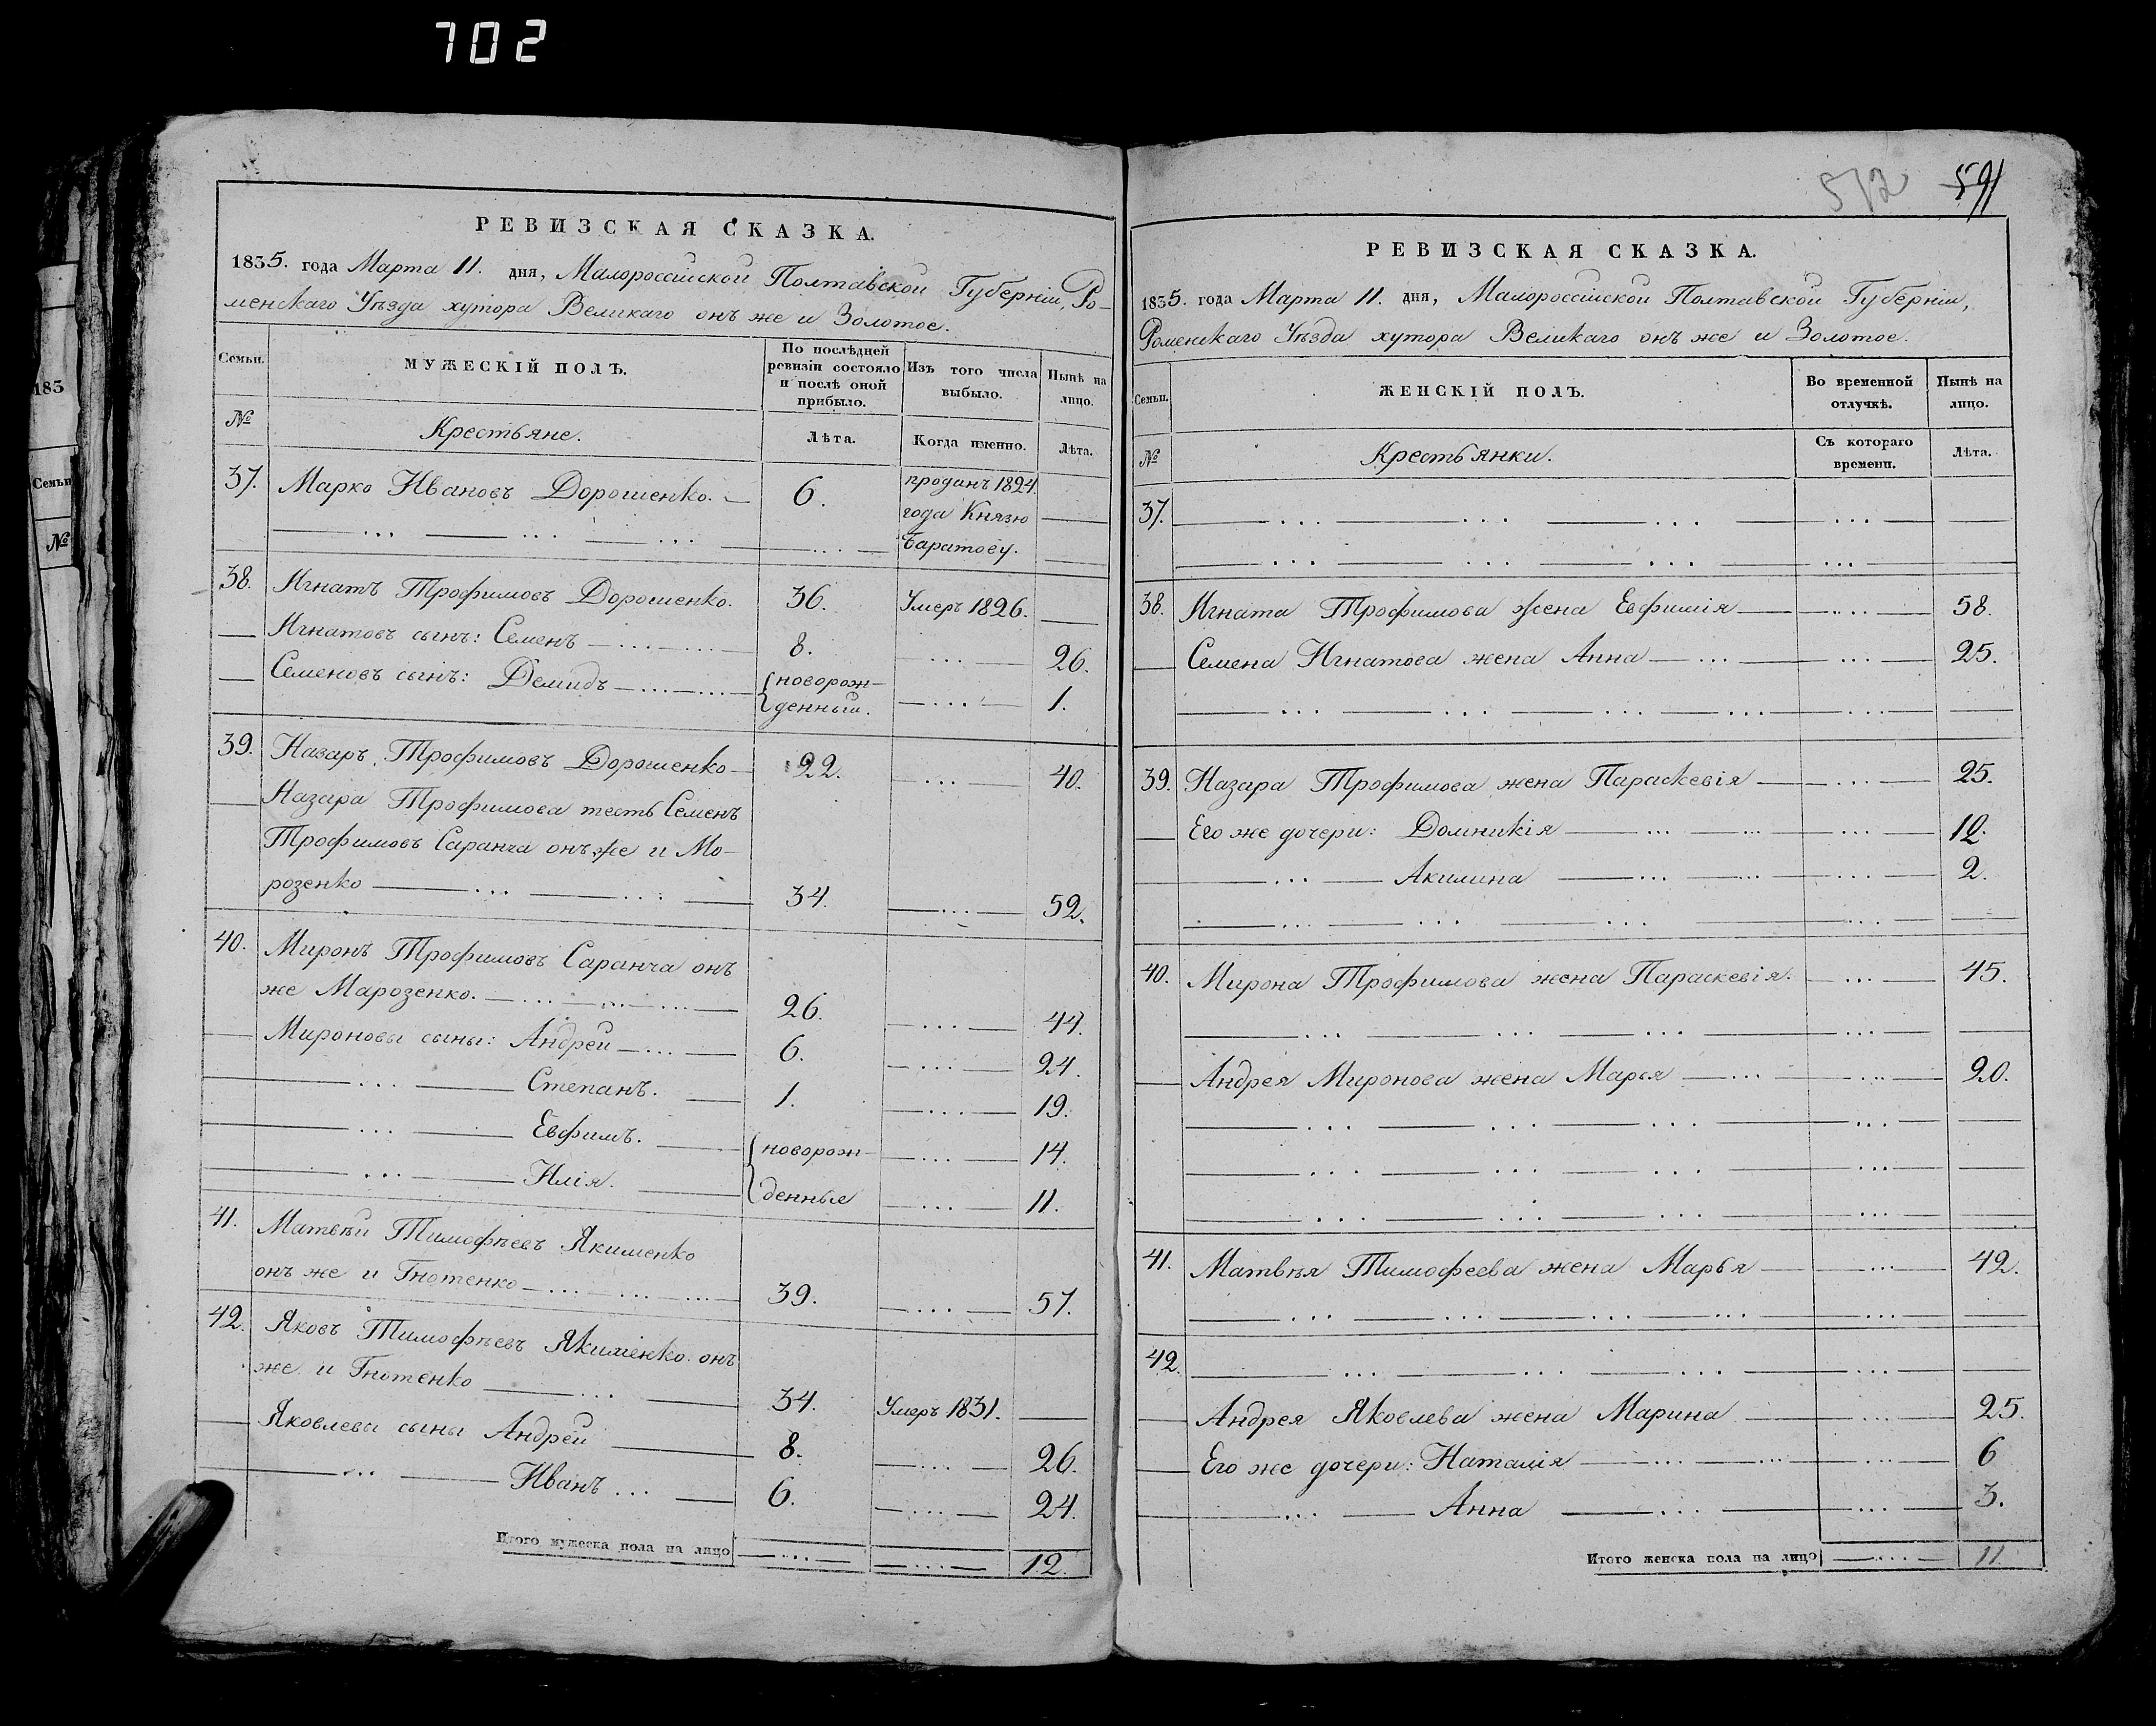 702
РЕВИЗСКАЯ СКАЗКА.
1835. года Марта 11. дня, Малороссійской Полтавской Губерніи, Ро-
менскаго Уѣзда хутора Великаго онъ же и Золотое.
Семьи.
МУЖЕСКІЙ ПОЛЪ.
По послѣдней
ревизіи состояло
и послѣ оной
прибыло.
Изъ того числа
выбыло.
Нынѣ на
лицо.
№
Крестьяне.
Лѣта.
Когда именно.
Лѣта.
37. Марко Ивановъ Дорошенко. 6. проданъ 1824.
года Князю
Баратову.
38. Игнатъ Трофимовъ Дорошенко. 36. Умеръ 1826.
Игнатовъ сынъ: Семенъ 8. 26.
Семеновъ сынъ: Демидъ новорож-
денный. 1.
39. Назаръ Трофимовъ Дорошенко 22. 40.
Назара Трофимова тесть Семенъ
Трофимовъ Саранча онъ же и Мо-
розенко 34. 52.
40. Миронъ Трофимовъ Саранча онъ
же Марозенко. 26. 44.
Мироновы сыны: Андрей 6. 24.
Степанъ. 1. 19.
Евфимъ. новорож- 14.
Илія. денные 11.
41. Матвѣй Тимофѣевъ Якименко
онъ же и Гнотенко 39. 57.
42. Яковъ Тимофѣевъ Якименко онъ
же и Гнотенко 34. Умеръ 1831.
Яковлевы сыны Андрей 8. 26.
Иванъ 6. 24.
Итого мужеска пола на лицо 12.
183
Семьи
№
512 591
РЕВИЗСКАЯ СКАЗКА.
1835. года Марта 11. дня, Малороссійской Полтавской Губерніи,
Роменскаго Уѣзда хутора Великаго онъ же и Золотое.
Семьи.
ЖЕНСКІЙ ПОЛЪ.
Во временной
отлучкѣ.
Нынѣ на
лицо.
№
Крестьянки.
Съ котораго
времени.
Лѣта.
37.
38. Игната Трофимова жена Евфимія 58.
Семена Игнатова жена Анна 25.
39. Назара Трофимова жена Параскевія 25.
Его же дочери: Домникія 12.
Акилина 2.
40. Мирона Трофимова жена Параскевія. 45.
Андрея Миронова жена Марья 20.
41. Матвѣя Тимофеева жена Марья 42.
42.
Андрея Яковлева жена Марина 25.
Его же дочери: Наталія 6
Анна 3.
Итого женска пола на лицо 11.